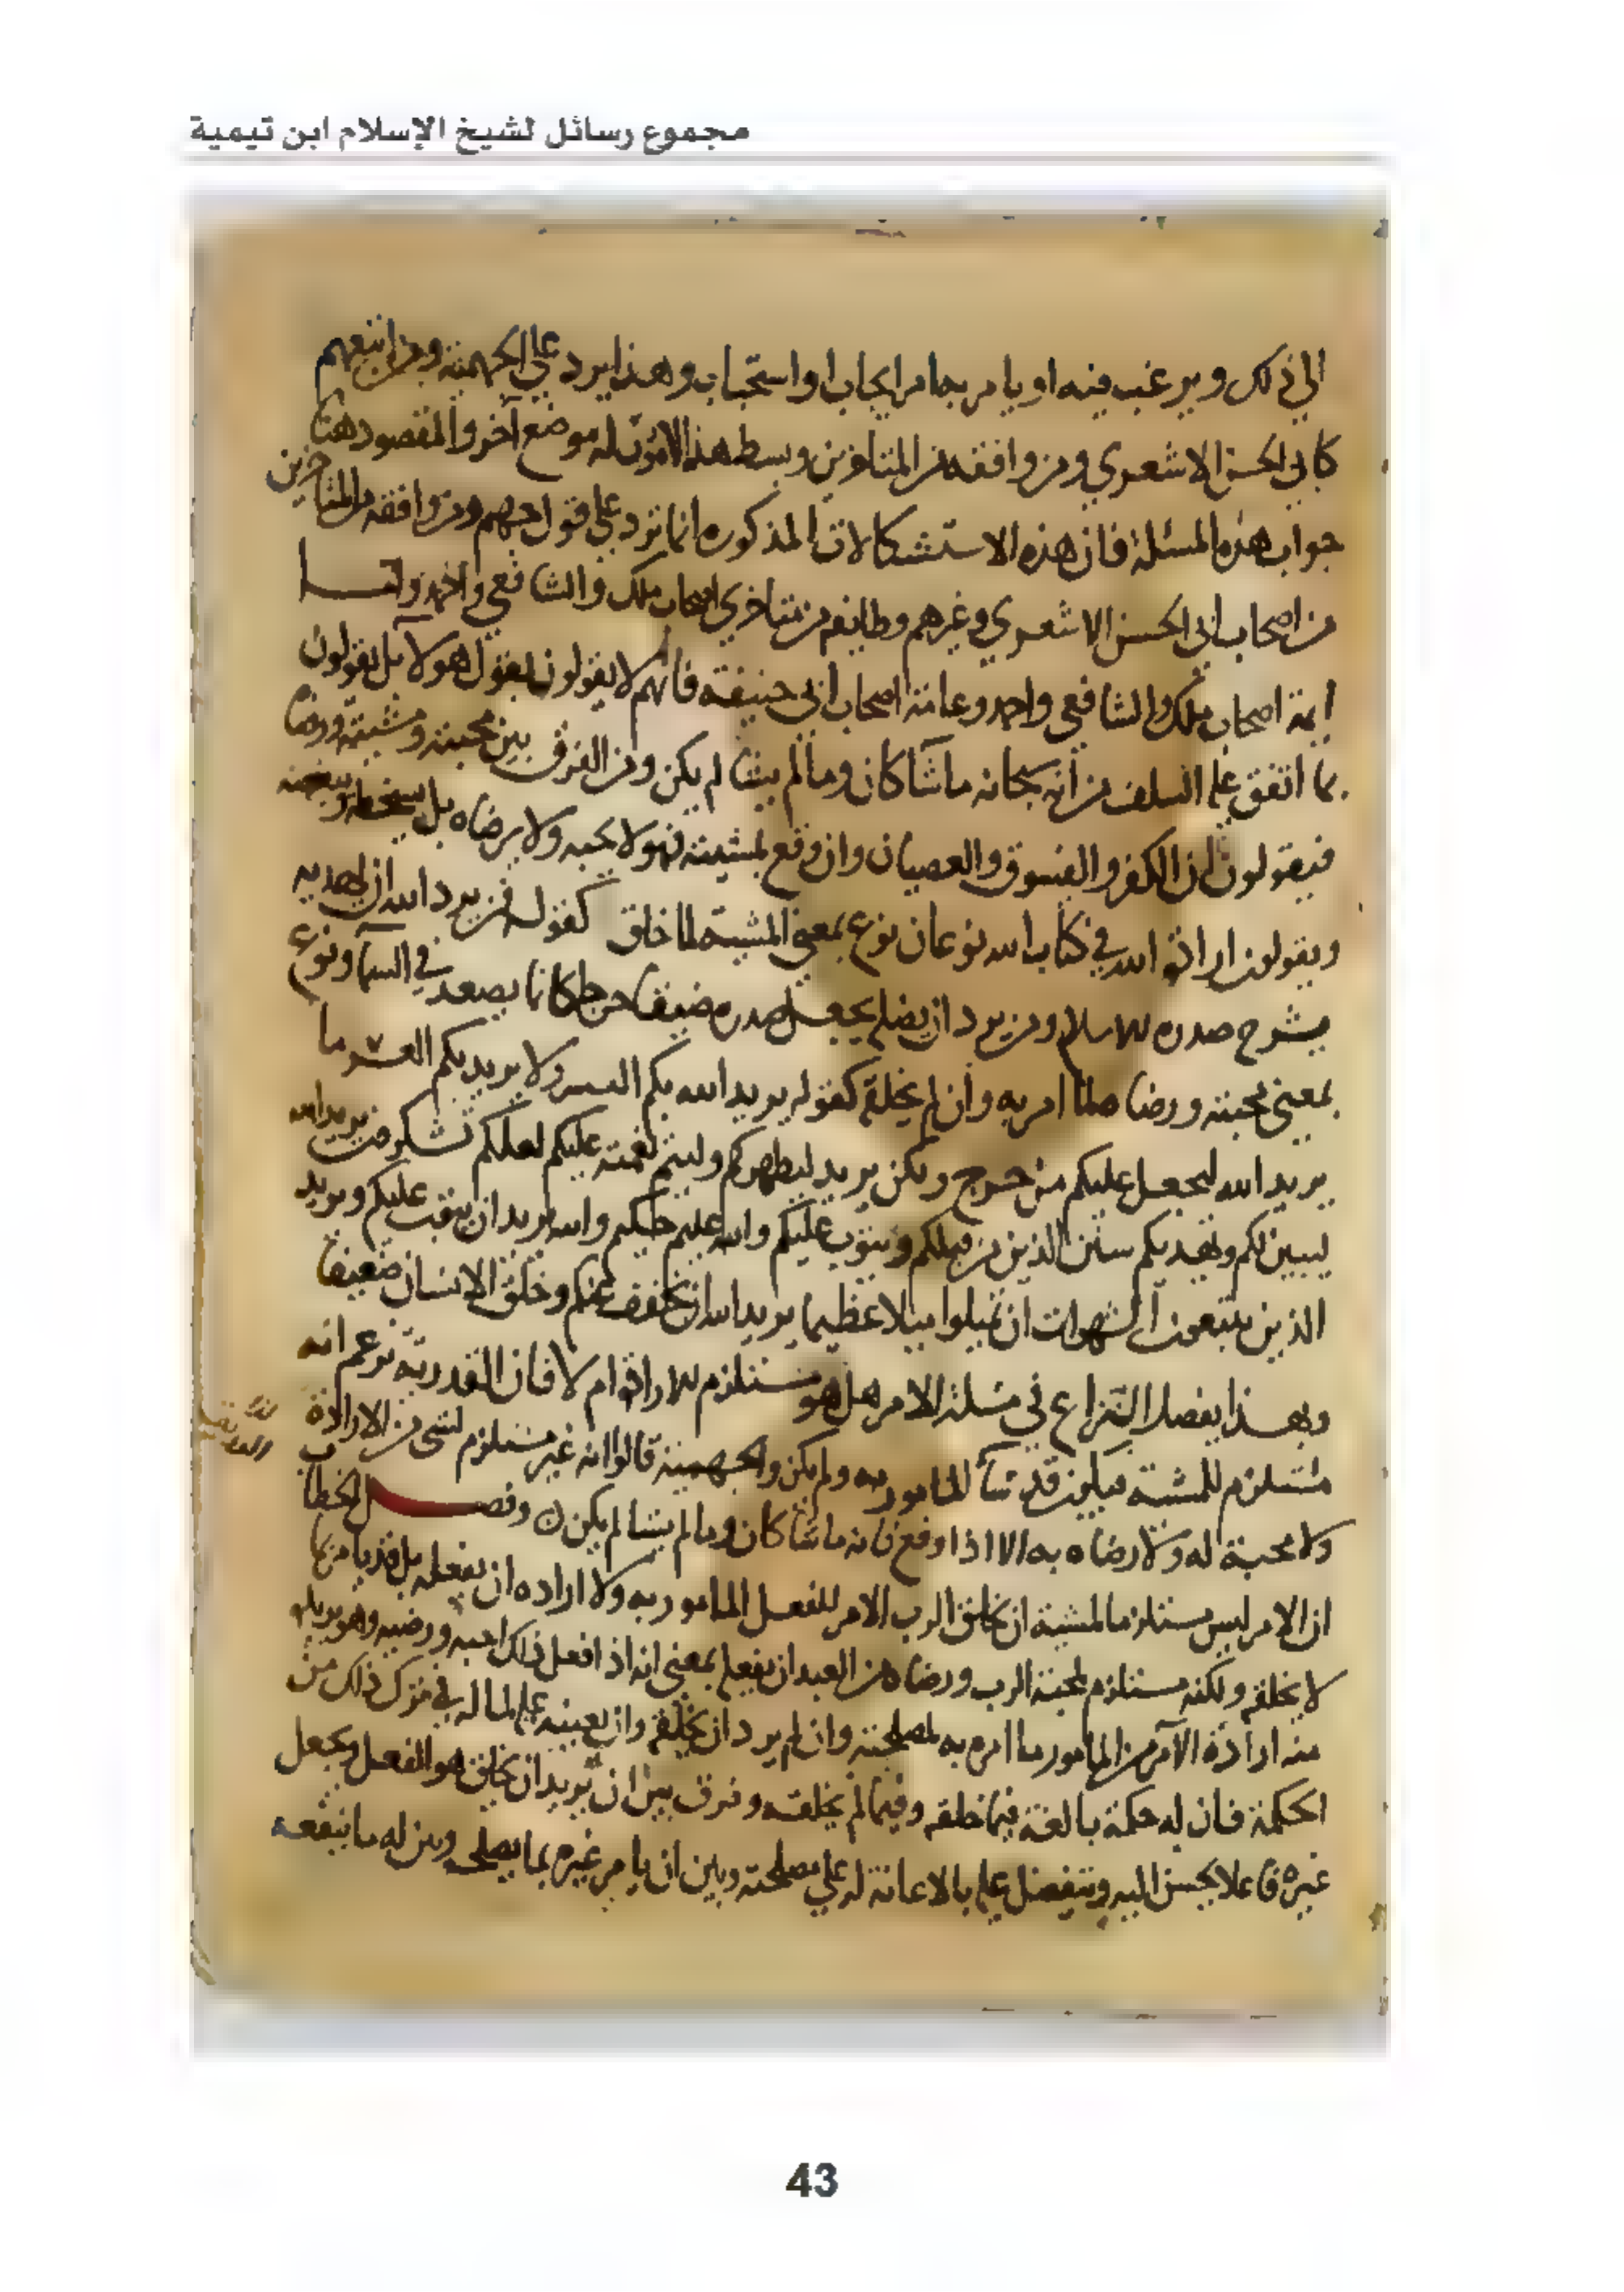 مجموع رسائل لشيخ الإسلام ابن تيمية
الى ذلك ويرغب فيه او يامر بها مر ايجاب او استحباب وهذا يرد على الجهمية ومن اتبعهم
كابي الحسن الاشعري ومن وافقه من المتاخرين وبسط هذه الامور له موضع آخر والمقصود هنا
جواب هذه المسئلة فان هذه الاستشكالات المذكوره انما ترد على قول جهم ومن وافقه من المتاخرين
من اصحاب ابي الحسن الاشعري وغيرهم وطايفه من متاخري اصحاب ملك والشافعي واحمد واما
ايمة اصحاب ملك والشافعي واحمد وعامة اصحاب ابي حنيفة فانهم لا يقولون بقول هولا بل يقولون
بما اتفق عليه السلف من انه سبحانه ما شا كان وما لم يشا لم يكن ومن الفرق بين محبته ومشيته ورضاه
فيقولون ان الكفر والفسوق والعصيان وان وقع بمشيته فهو لا يحبه ولا يرضاه بل يسخطه ويبغضه
ويقولون ارادة الله في كتاب الله نوعان نوع بمعنى المشية لما خلق كقوله فمن يرد الله ان يهديه
يشرح صدره للاسلام ومن يرد ان يضله يجعل صدره ضيقا حرجا كانما يصعد في السما ونوع
بمعنى محبته ورضاه لما امر به وان لم يخلقه كقوله يريد الله بكم اليسر ولا يريد بكم العسر ما
يريد الله ليجعل عليكم من حرج ولكن يريد ليطهركم وليتم نعمته عليكم لعلكم تشكرون يريد الله
ليبين لكم ويهديكم سنن الذين من قبلكم ويتوب عليكم والله عليم حكيم والله يريد ان يتوب عليكم ويريد
الذين يتبعون الشهوات ان تميلوا ميلا عظيما يريد الله ان يخفف عنكم وخلق الانسان ضعيفا
وبهذا يفصل النزاع في مسئلة الامر هل هو مستلزم للارادة ام لا فان القدرية تزعم انه
مستلزم للمشية فيكون قد شا المامور به ولم يكن والجهمية قالوا انه غير مستلزم لشى من الارادة
ولا محبة له ولا رضاه به الا اذا وقع فانه ما شا كان وما لم يشا لم يكن وفصل الخطاب
ان الامر ليس مستلزما لمشية ان يخلق الرب الامر للفعل المامور به ولا اراده ان يفعله بل قد يامر بما
لا يخلقه ولكنه مستلزم لمحبة الرب ورضاه من العبد ان يفعله بمعنى انه اذا فعل ذلك احبه ورضيه وهو يريده
منه ارادة الآمر من المامور ما امره به لمصلحته وان لم يرد ان يخلقه وان يعينه عليه لما له في ترك ذلك من
الحكمة فان له حكمة بالغة فيما خلقه وفيما لم يخلقه وفرق بين ان يريد ان يخلق هو الفعل ويجعل
غيره فاعلا يحسن اليه ويتفضل عليه بالاعانة له على مصلحته وبين ان يامر غيره بما يصلحه ويبين له ما ينفعه
43